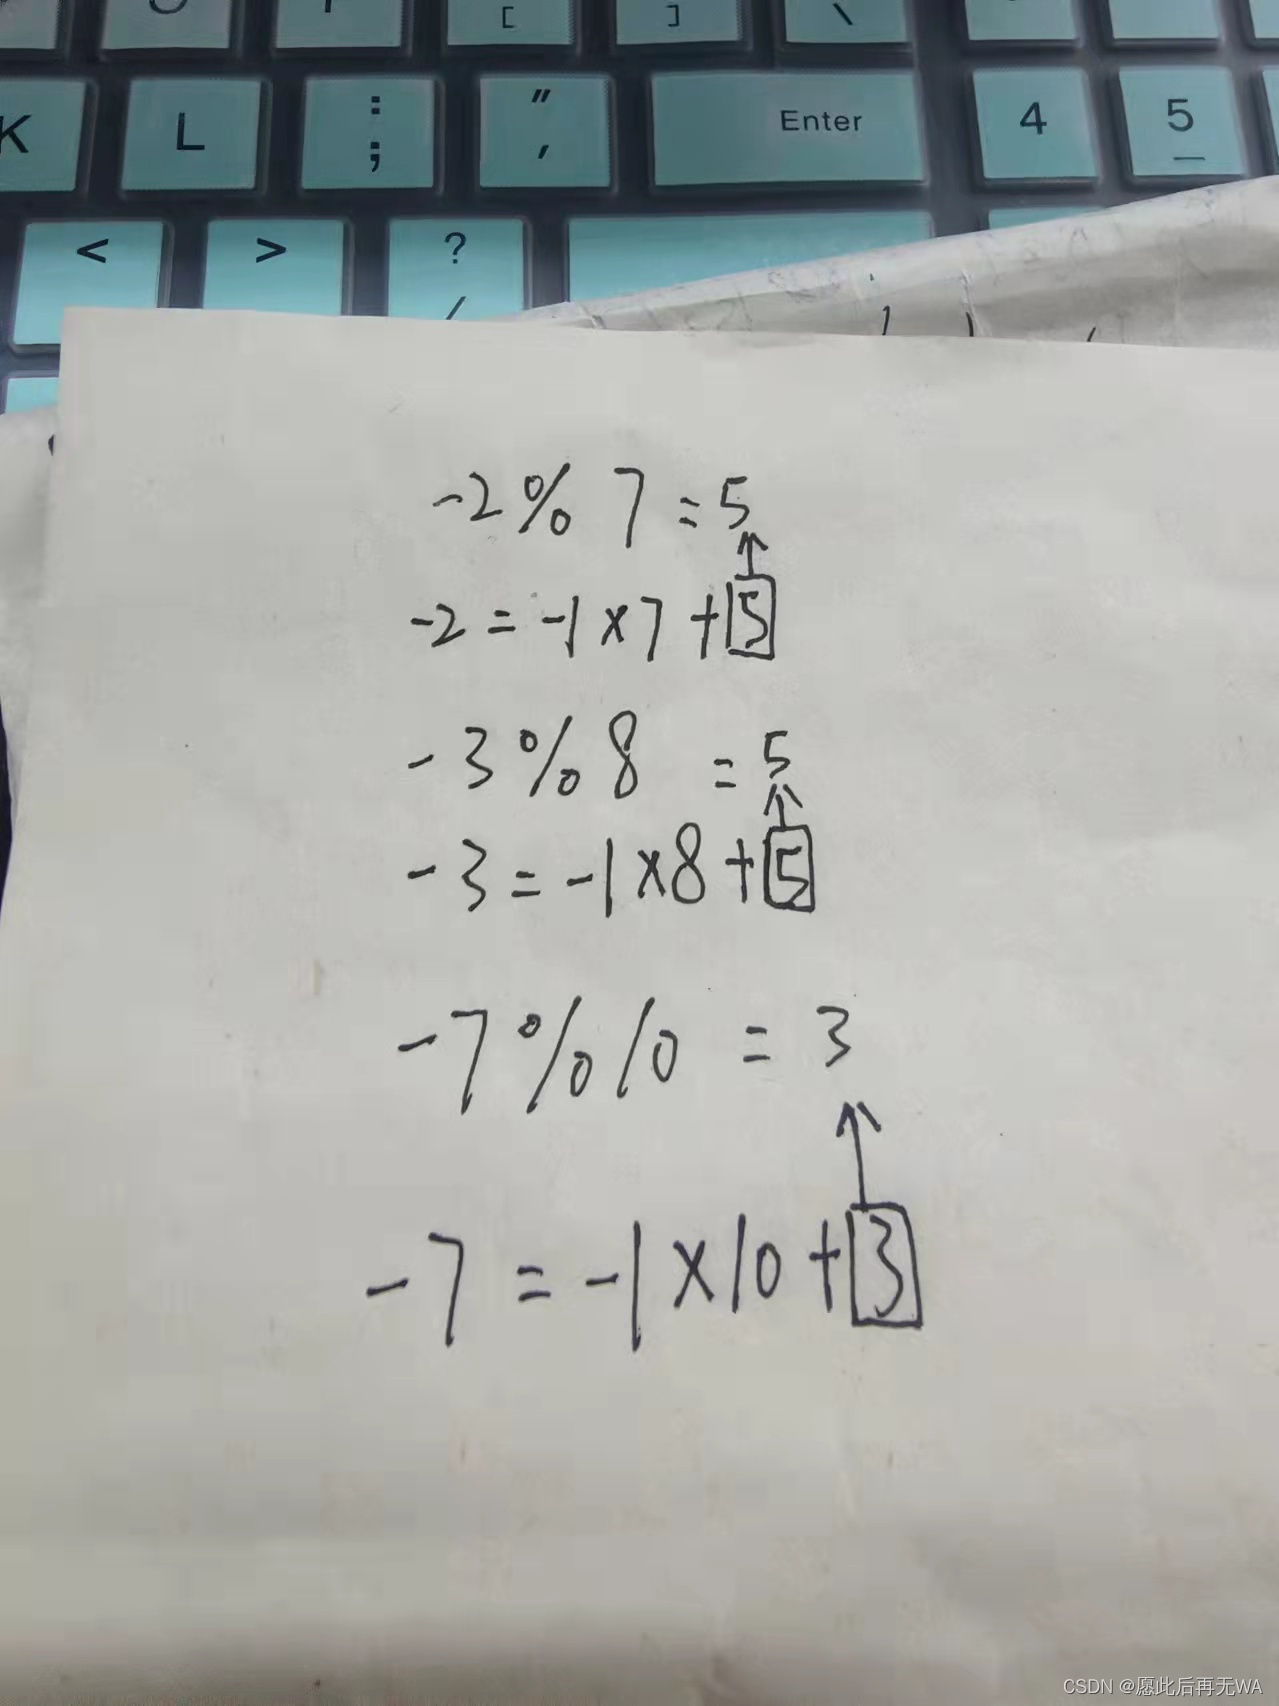 [ ] \
K L : ; " , Enter 4 5
< > ? /
-2%7=5
-2=-1×7+5
-3%8=5
-3=-1×8+5
-7%10=3
-7=-1×10+3
CSDN @愿此后再无WA